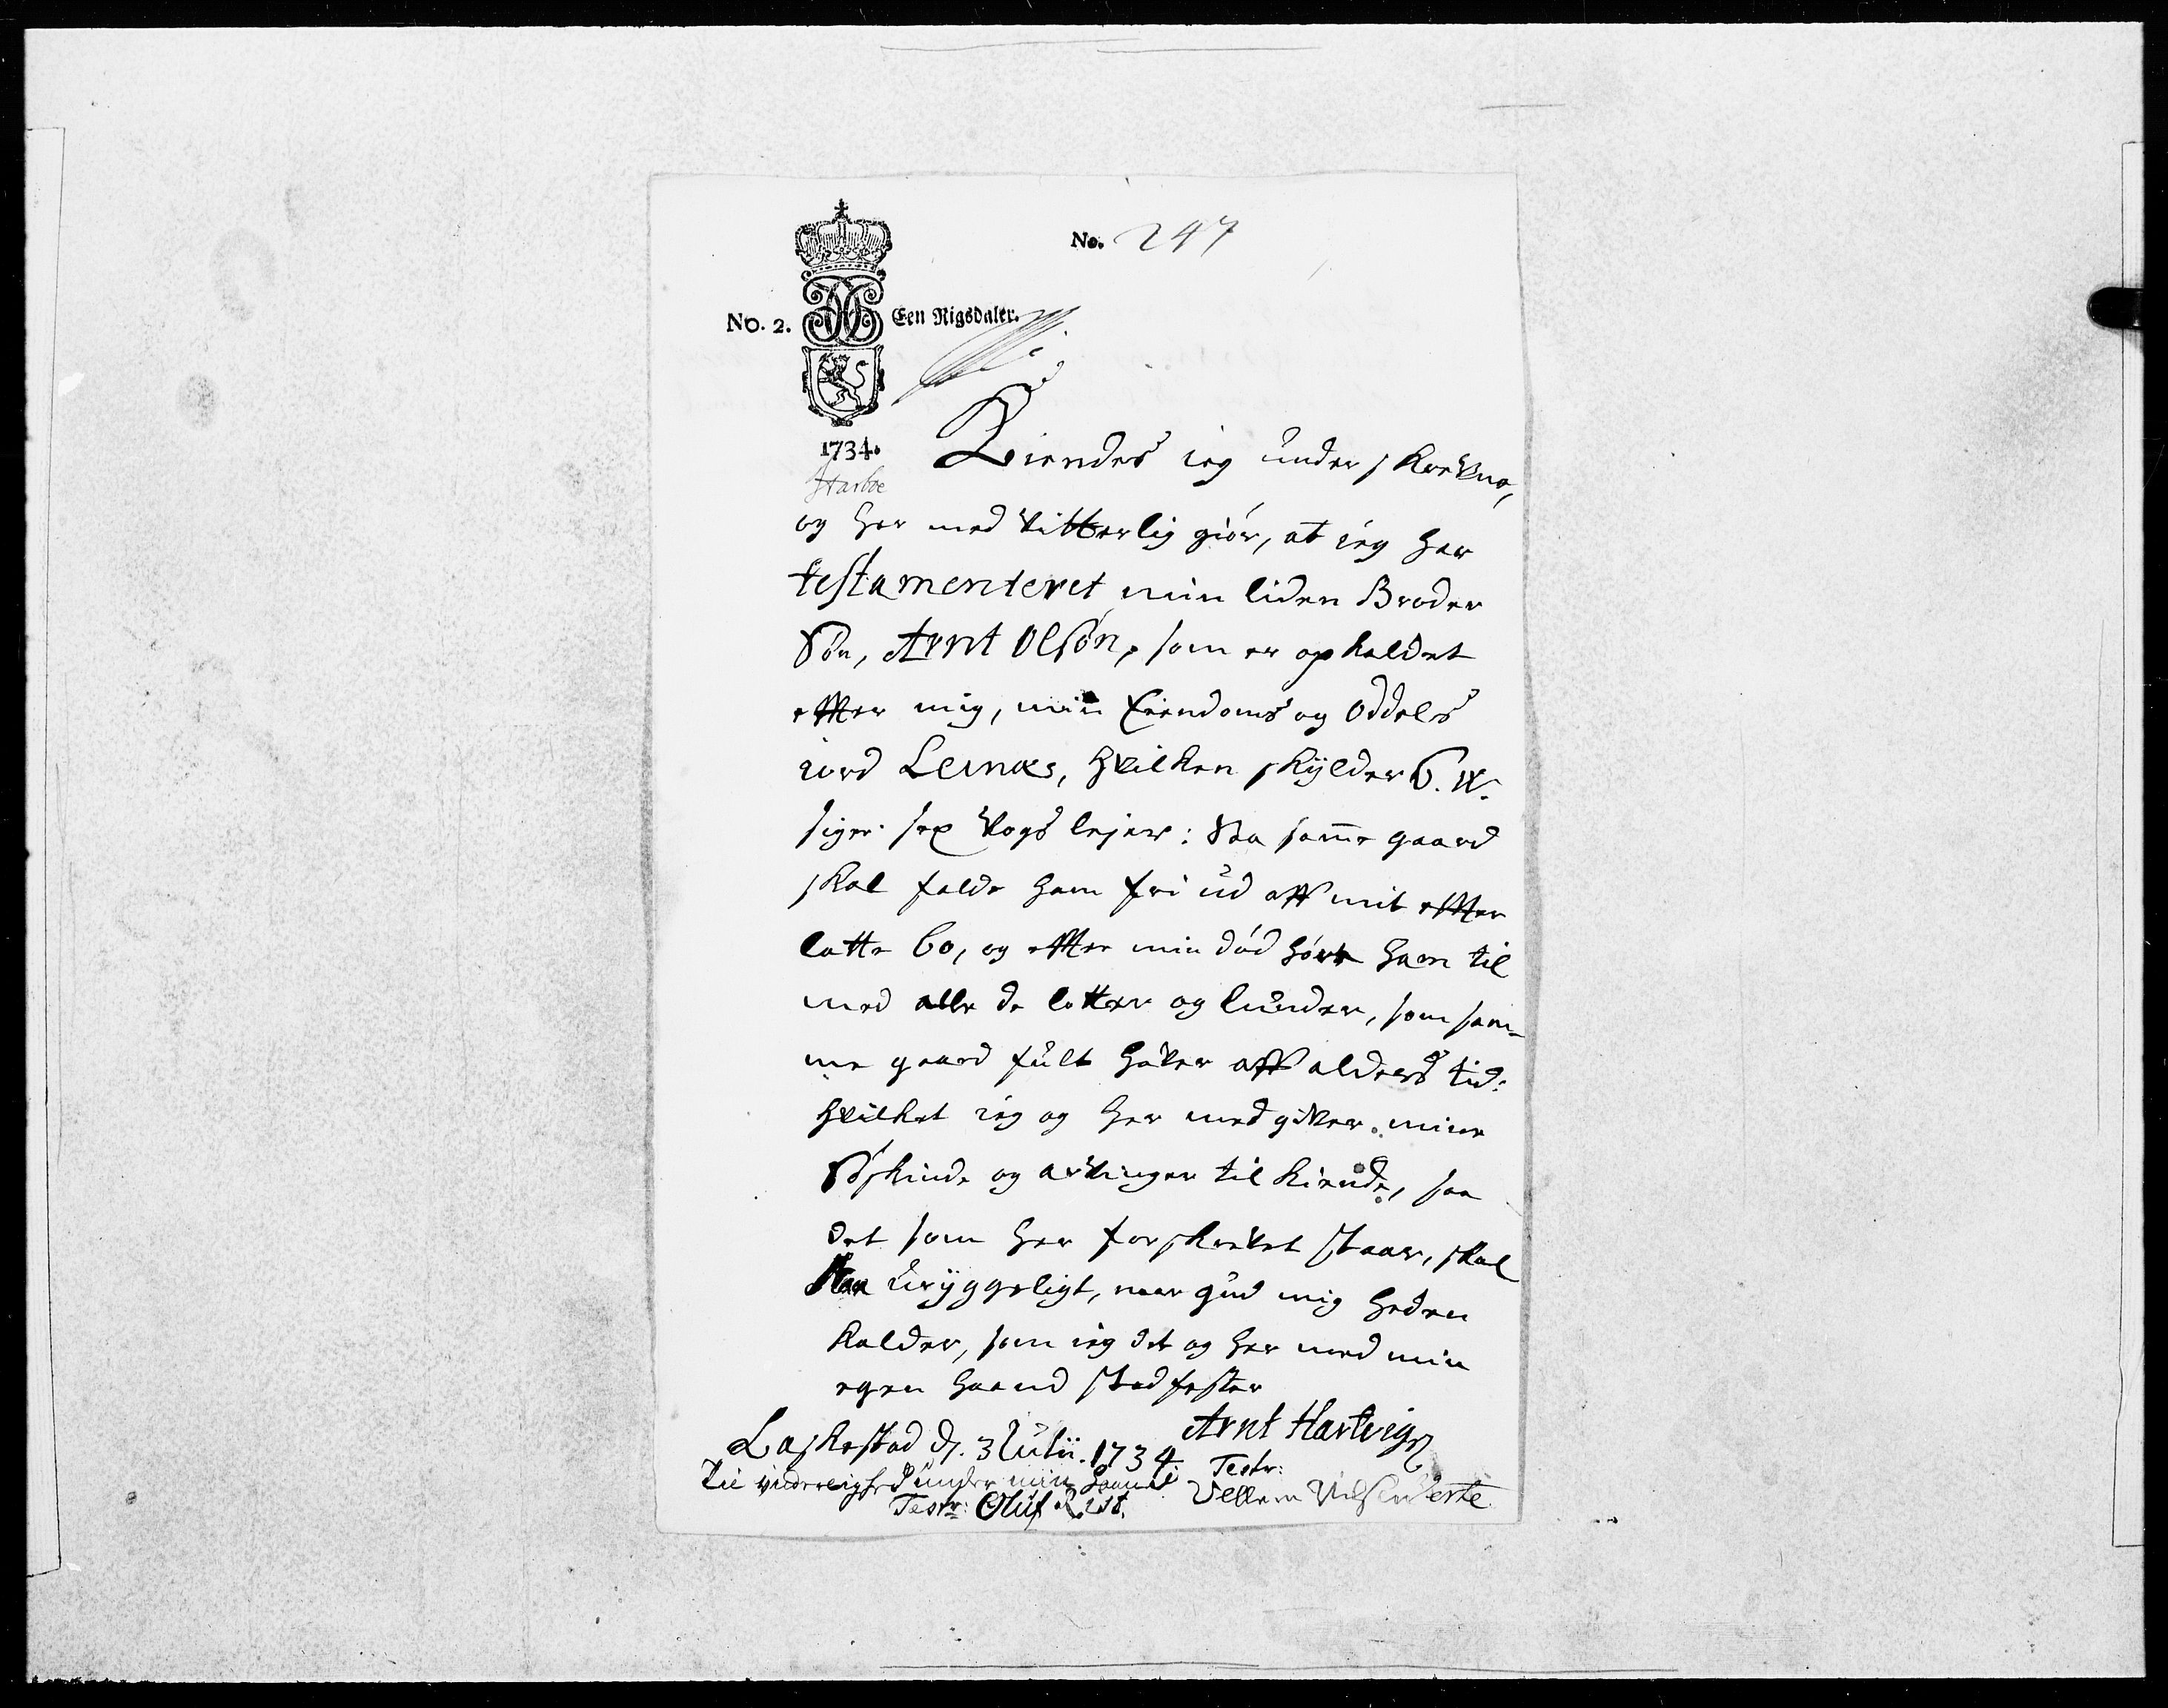 No. 247
No. 2. Een Rigsdaler.
1734.
Harboe
Kiendes ieg under skrevne,
og her med vitterlig giör, at ieg har
testamenteret min liden Broder
Sön, Arnt Olsön, som er opkaldet
effter mig, min Eiendoms og Oddels
iord Leinæs, hvilken skÿlder 6. W.
siger: sex Vogs lejer: Saa samme gaard
skal falde ham fri ud aff mit effter
latte bo, og effter min död höre ham til
med alle de lotter og lunder, som sam-
me gaard fult haver aff alders tid:
hvilket ieg og her med giver mine
Söskinde og arvinger til kiende, saa
det som her forskrevet staar, skal
staa urÿggeligt, naar gud mig heden
kalder, som ieg det og her med min
egen haand stadfester
Laskestad d. 3 Julii. 1734
Arnt Hartvigs
Til viderlighed under min haand
Testr: Oluf
Testr:
Vellum